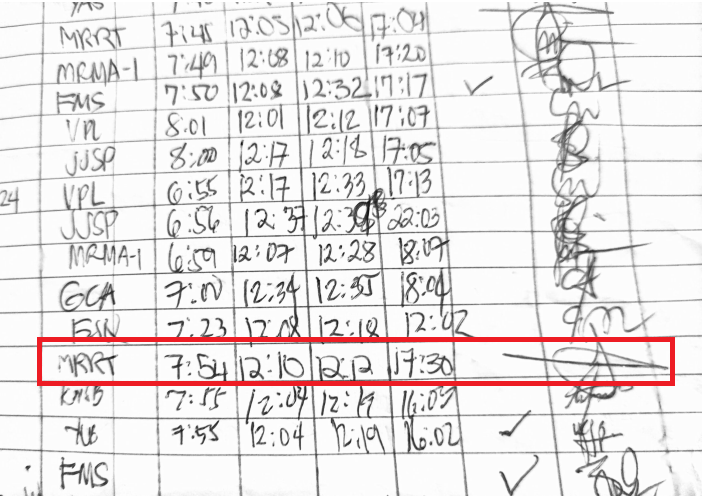 MRRT 7:45 12:05 12:06 17:04
MRMA-1 7:49 12:08 12:10 17:20
FMS 7:50 12:08 12:32 17:17
VPL 8:01 12:01 12:12 17:07
JJSP 8:00 12:17 12:18 17:05
24 VPL 6:55 12:17 12:33 17:13
JJSP 6:56 12:37 22:03
MRMA-1 6:59 12:07 12:28 18:07
GCA 7:00 12:34 12:35 18:04
7:23 12:08 12:18 12:02
MRRT 7:54 12:10 12:12 17:30
7:55 12:04 12:19 16:03
7:55 12:04 12:19 16:02
FMS